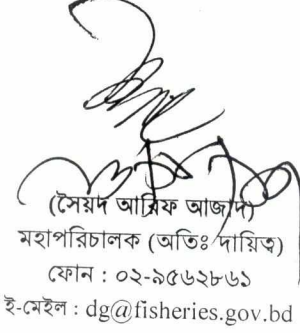 (সৈয়দ আরিফ আজাদ)
মহাপরিচালক (অতিঃ দায়িত্ব)
ফোন : ০২-৯৫৬২৮৬১
ই-মেইল : dg@fisheries.gov.bd